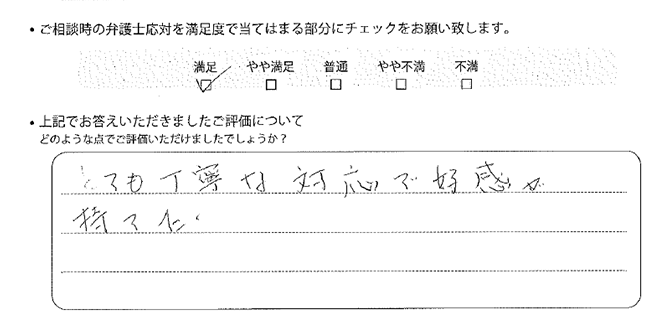 ・ご相談時の弁護士応対を満足度で当てはまる部分にチェックをお願い致します。
満足 やや満足 普通 やや不満 不満
・上記でお答えいただきましたご評価について
どのような点でご評価いただけましたでしょうか?
とても丁寧な対応で好感が
持てた。